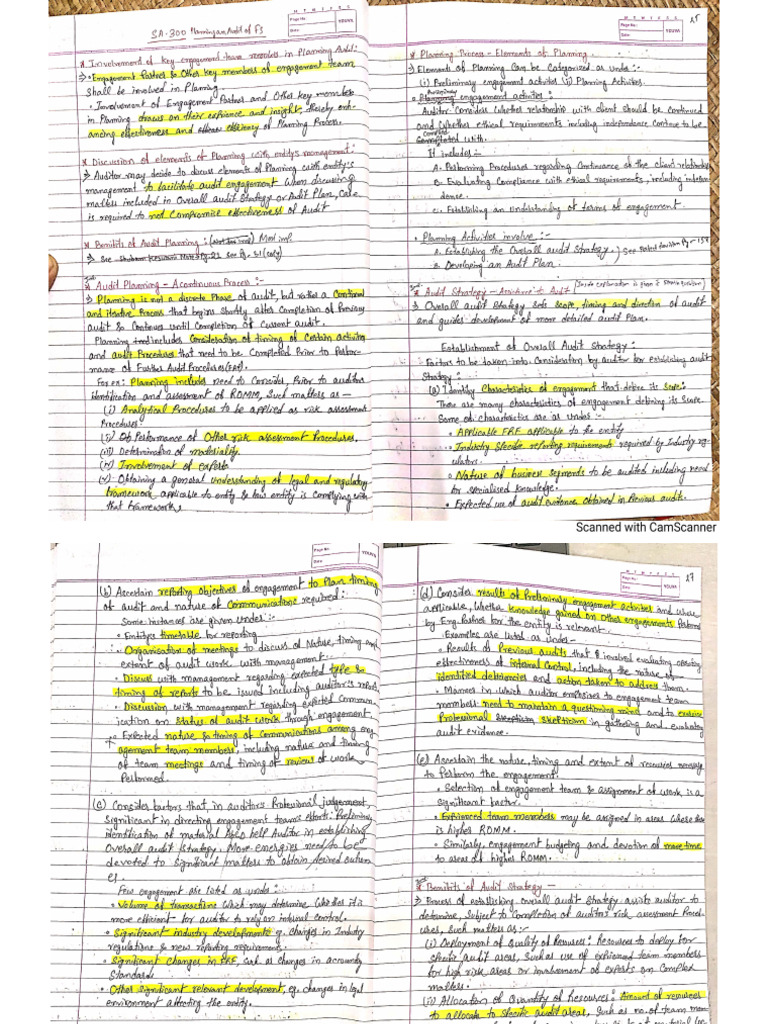 SA-300 Planning an Audit of FS
* Involvement of key engagement team members in Planning Audit:
⇒ • Engagement Partner & Other key members of engagement team
shall be involved in Planning.
• Involvement of Engagement Partner and Other key member
in Planning draws on their expience and insight, thereby enh-
ancing effectiveness and efficiency of Planning Process.
* Discussion of elements of Planning with entity's management:
⇒ Auditor may decide to discuss elements of Planning with entity's
management to facilitate audit engagement When discussing
matters included in Overall audit Strategy or Audit Plan, Care
is required to not Compromise effectiveness of Audit
* Benifits of Audit Planning : Most imp.
⇒ See
* Audit Planning - A continuous Process :-
⇒ Planning is not a discrete Phase of audit, but rather a Continual
and iterative Process that begins shortly after Completion of Previous
audit & Continues until Completion of Current audit.
Planning includes Consideration of timing of Certain activities
and audit Procedures that need to be Completed Prior to Perfor-
mance of Further Audit Procedures (FAP).
For ex: Planning includes need to Consider, Prior to auditors
identification and assessment of ROMM, Such matters as -
(i) Analytical Procedures to be applied as risk assessment
Procedures.
(ii) Of Performance of Other risk assessment Procedures.
(iii) Determination of materiality.
(iv) Involvement of experts
(v) Obtaining a general understanding of legal and regulatory
framework applicable to entity & how entity is Complying with
that framework
M T W T F S S
Page No.:
Date:
YOUVA
25
* Planning Process - Elements of Planning -
⇒ Elements of Planning Can be Categorized as under :-
(i) Preliminary engagement activites (ii) Planning Activites.
• Preliminary engagement activities :
Auditor Consider Whether relationship with client should be continued
and Whether ethical requirements including independence Continue to be
Complied with.
It includes -
A. Performing Procedures regarding Continuance of the client relationship
B. Evaluating Compliance with ethical requirements, including indepen-
dence.
C. Establishing an Understanding of terms of engagement.
• Planning Activities involve :-
A. Establishing the Overall audit Strategy.
B. Developing an Audit Plan.
* Audit Strategy -
⇒ Overall audit Strategy Sets Scope, timing and direction of audit
and guides development of more detailed audit Plan.
Establishment of Overall Audit Strategy :
Factors to be taken into Consideration by auditor for establishing audit
Strategy :
(a) Identify Characteristics of engagement that define its Scope:
There are many characteristics of engagement defining its Scope.
Some of characteristics are as under :-
• Applicable FRF applicable to the entity
• Industry Specific reporting requirements required by Industry reg-
ulators.
• Nature of business segments to be audited including need
for specialised knowledge.
• Expected use of audit evidence obtained in Previous audit.
M T W T F S S
Page No.:
Date:
YOUVA
Scanned with CamScanner
(b) Ascertain reporting objectives of engagement to Plan timing
of audit and nature of Communications required :
Some instances are given under :-
• Entity's timetable for reporting
• Organisation of meetings to discuss of Nature, timing and
extent of audit work with management.
• Discuss with management regarding expected type &
timing of reports to be issued including auditor's report
• Discussion with management regarding expected Commun-
ication on Status of audit work through engagement
• Expected nature & timing of Communications among eng-
agement team members, including nature and timing
of team meetings and timing of review of work
Performed.
(c) Consider factors that, in auditor's Professional judgement,
Significant in directing engagement team's efforts: Preliminary
identification of material help Auditor in establishing
Overall audit Strategy. More energies need to be
devoted to Significant matters to obtain desired outcom
es.
Few engagement are listed as under :
• Volume of transactions Which may determine Whether it is
more efficient for auditor to rely on internal control.
• Significant industry developments eg. changes in Industry
regulations & new reporting requirements.
• Significant Changes in FRF, such as changes in accounting
Standards
• Other significant relevant development, eg. changes in legal
environment affecting the entity.
Page No.:
Date:
YOUVA
27
M T W T F S S
Page No.:
Date:
YOUVA
(d) Consider results of Preliminary engagement activities and where
applicable, Whether knowledge gained on Other engagements Perform
by Eng. Partner for the entity is relevant.
Examples are listed as under -
• Results of Previous audits that involved evaluating operating
effectiveness of internal Control, Including the nature of
identified deficiencies and action taken to address them.
• Manner in which auditor emphasizes to engagement team
members need to maintain a questioning mind and to exercise
Professional Skepticism in gathering and evaluating
audit evidence.
(e) Ascertain the nature, timing and extent of resources necessary
to Perform the engagement.
• Selection of engagement team & assignment of work is a
Significant factor.
• Expienced team members may be assigned in areas Where there
is higher ROMM.
• Similarly, engagement budgeting and devotion of more time
to areas of higher ROMM.
* Benifits of Audit Strategy -
⇒ Process of establishing overall audit Strategy assists auditor to
determine, Subject to Completion of auditor's risk assessment Proced-
ures, Such matters as :-
(i) Deployment of Quality of Resources : Resources to deploy for
Specific audit areas, Such as use of expienced team members
for high risk areas or involvement of experts on Complex
matters.
(ii) Allocation of Quantity of Resources : Amount of resources
to allocate to Specific audit areas, Such as no. of team mem